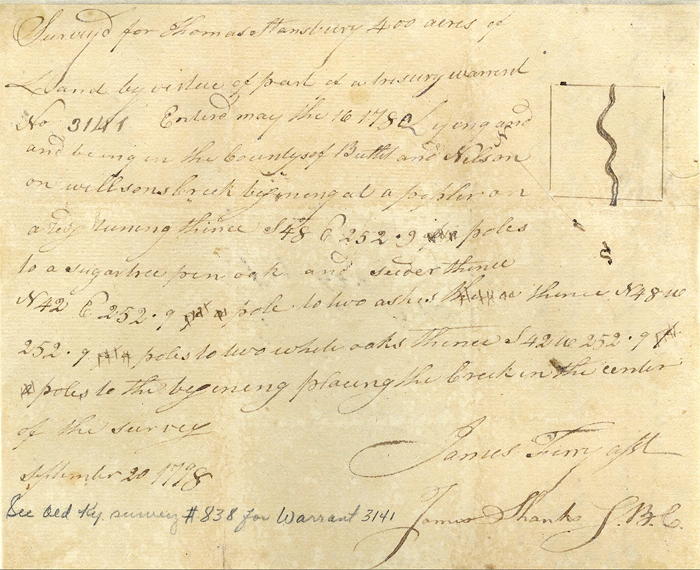 Survey'd for Thomas Stansbury 400 acres of
Land by virtue of part of a tresury warrent
No 3141 Enterd may the 16 1780 Lyeng and
and being in the Countys of Bullit and Nilson
on willsons kreek begining at a popler on
a redg runing thince S 48 E 252.9 poles
to a sugartree pin oak and thince
N 42 E 252.9 pole to two ashes thince N 48 W
252.9 poles to two white oaks thence S 42 W 252.9
poles to the begening placing the Creek in the center
of the survey
September 20 1798
James Asst
James Shanks S.B.C.
See Old Ky survey # 838 for Warrant 3141
N
S